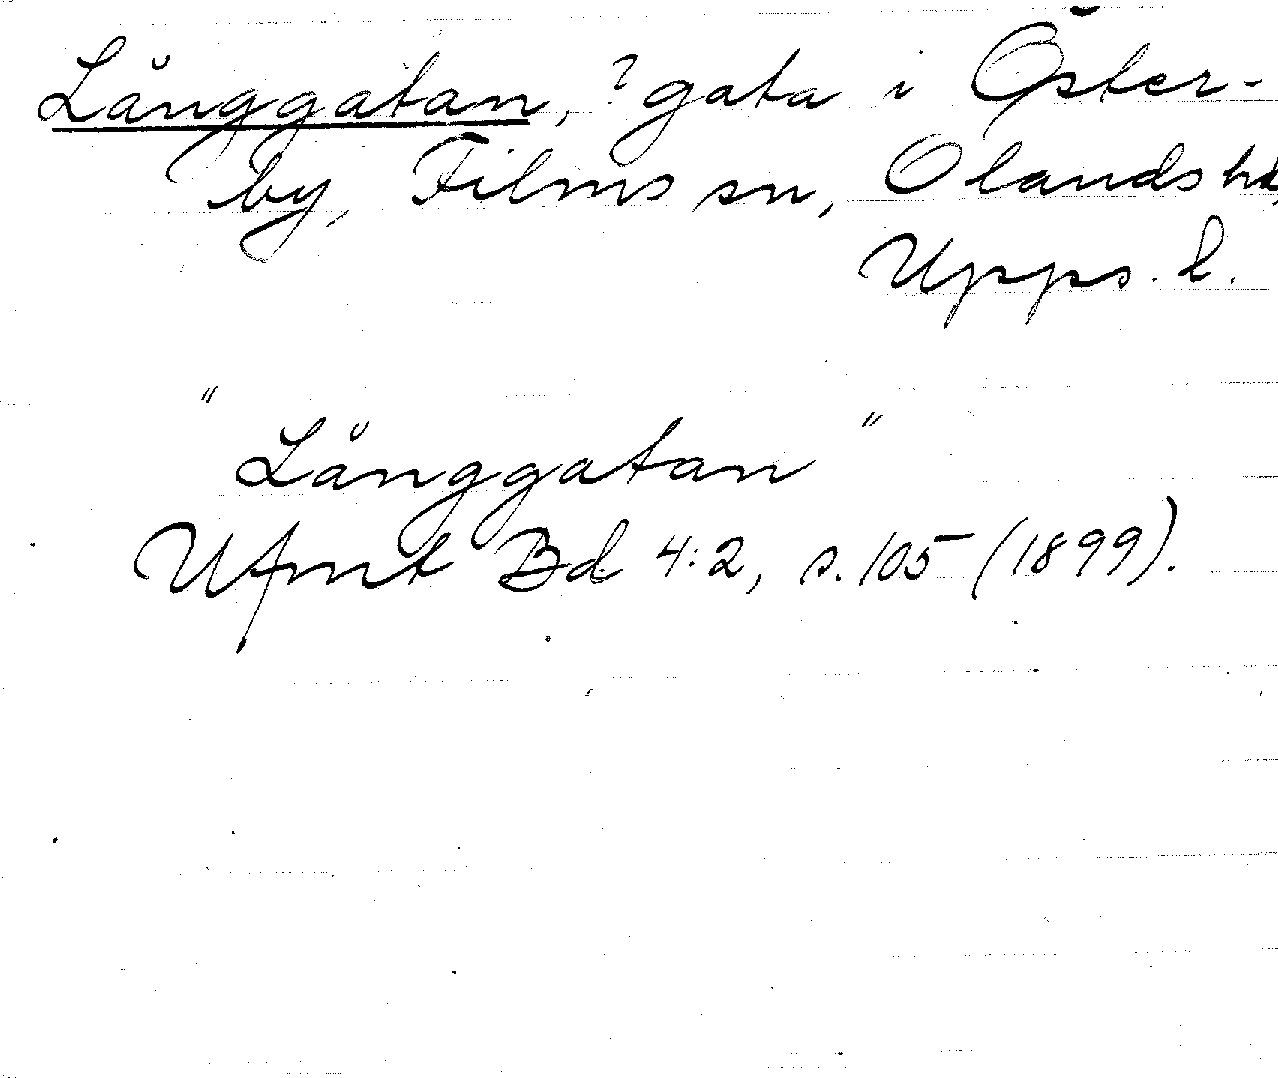 Långgatan, ? gata i Öster-
by, Films sn, Olands hd,
Upps. l.
"Långgatan"
Ufmt Bd 4:2, s. 105 (1899).